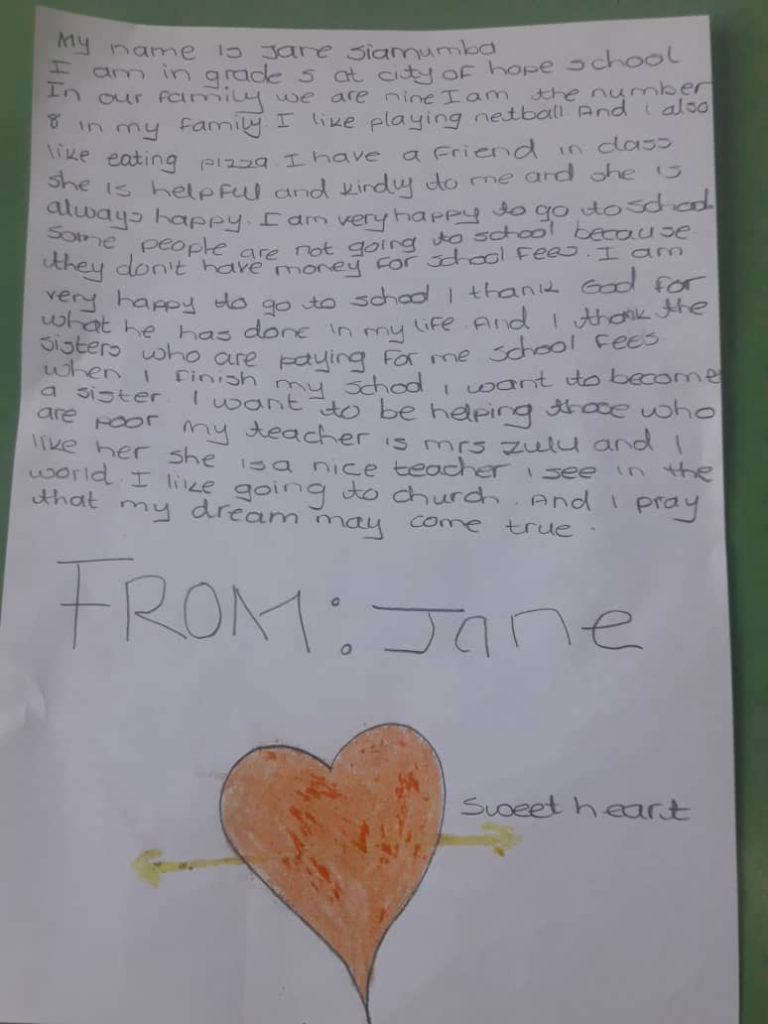 My name is Jane Siamumba
I am in grade 5 at city of hope school
In our family we are nine I am the number
8 in my family. I like playing netball And i also
like eating pizza. I have a friend in class
she is helpful and kindly to me and she is
always happy. I am very happy to go to school
some people are not going to school because
they don't have money for school fees. I am
very happy to go to school I thank God for
what he has done in my life. And I thank the
sisters who are paying for me school fees
when I finish my school I want to become
a sister. I want to be helping those who
are poor my teacher is mrs zulu and I
like her she is a nice teacher i see in the
world. I like going to church. And I pray
that my dream may come true.
FROM: Jane
sweet heart